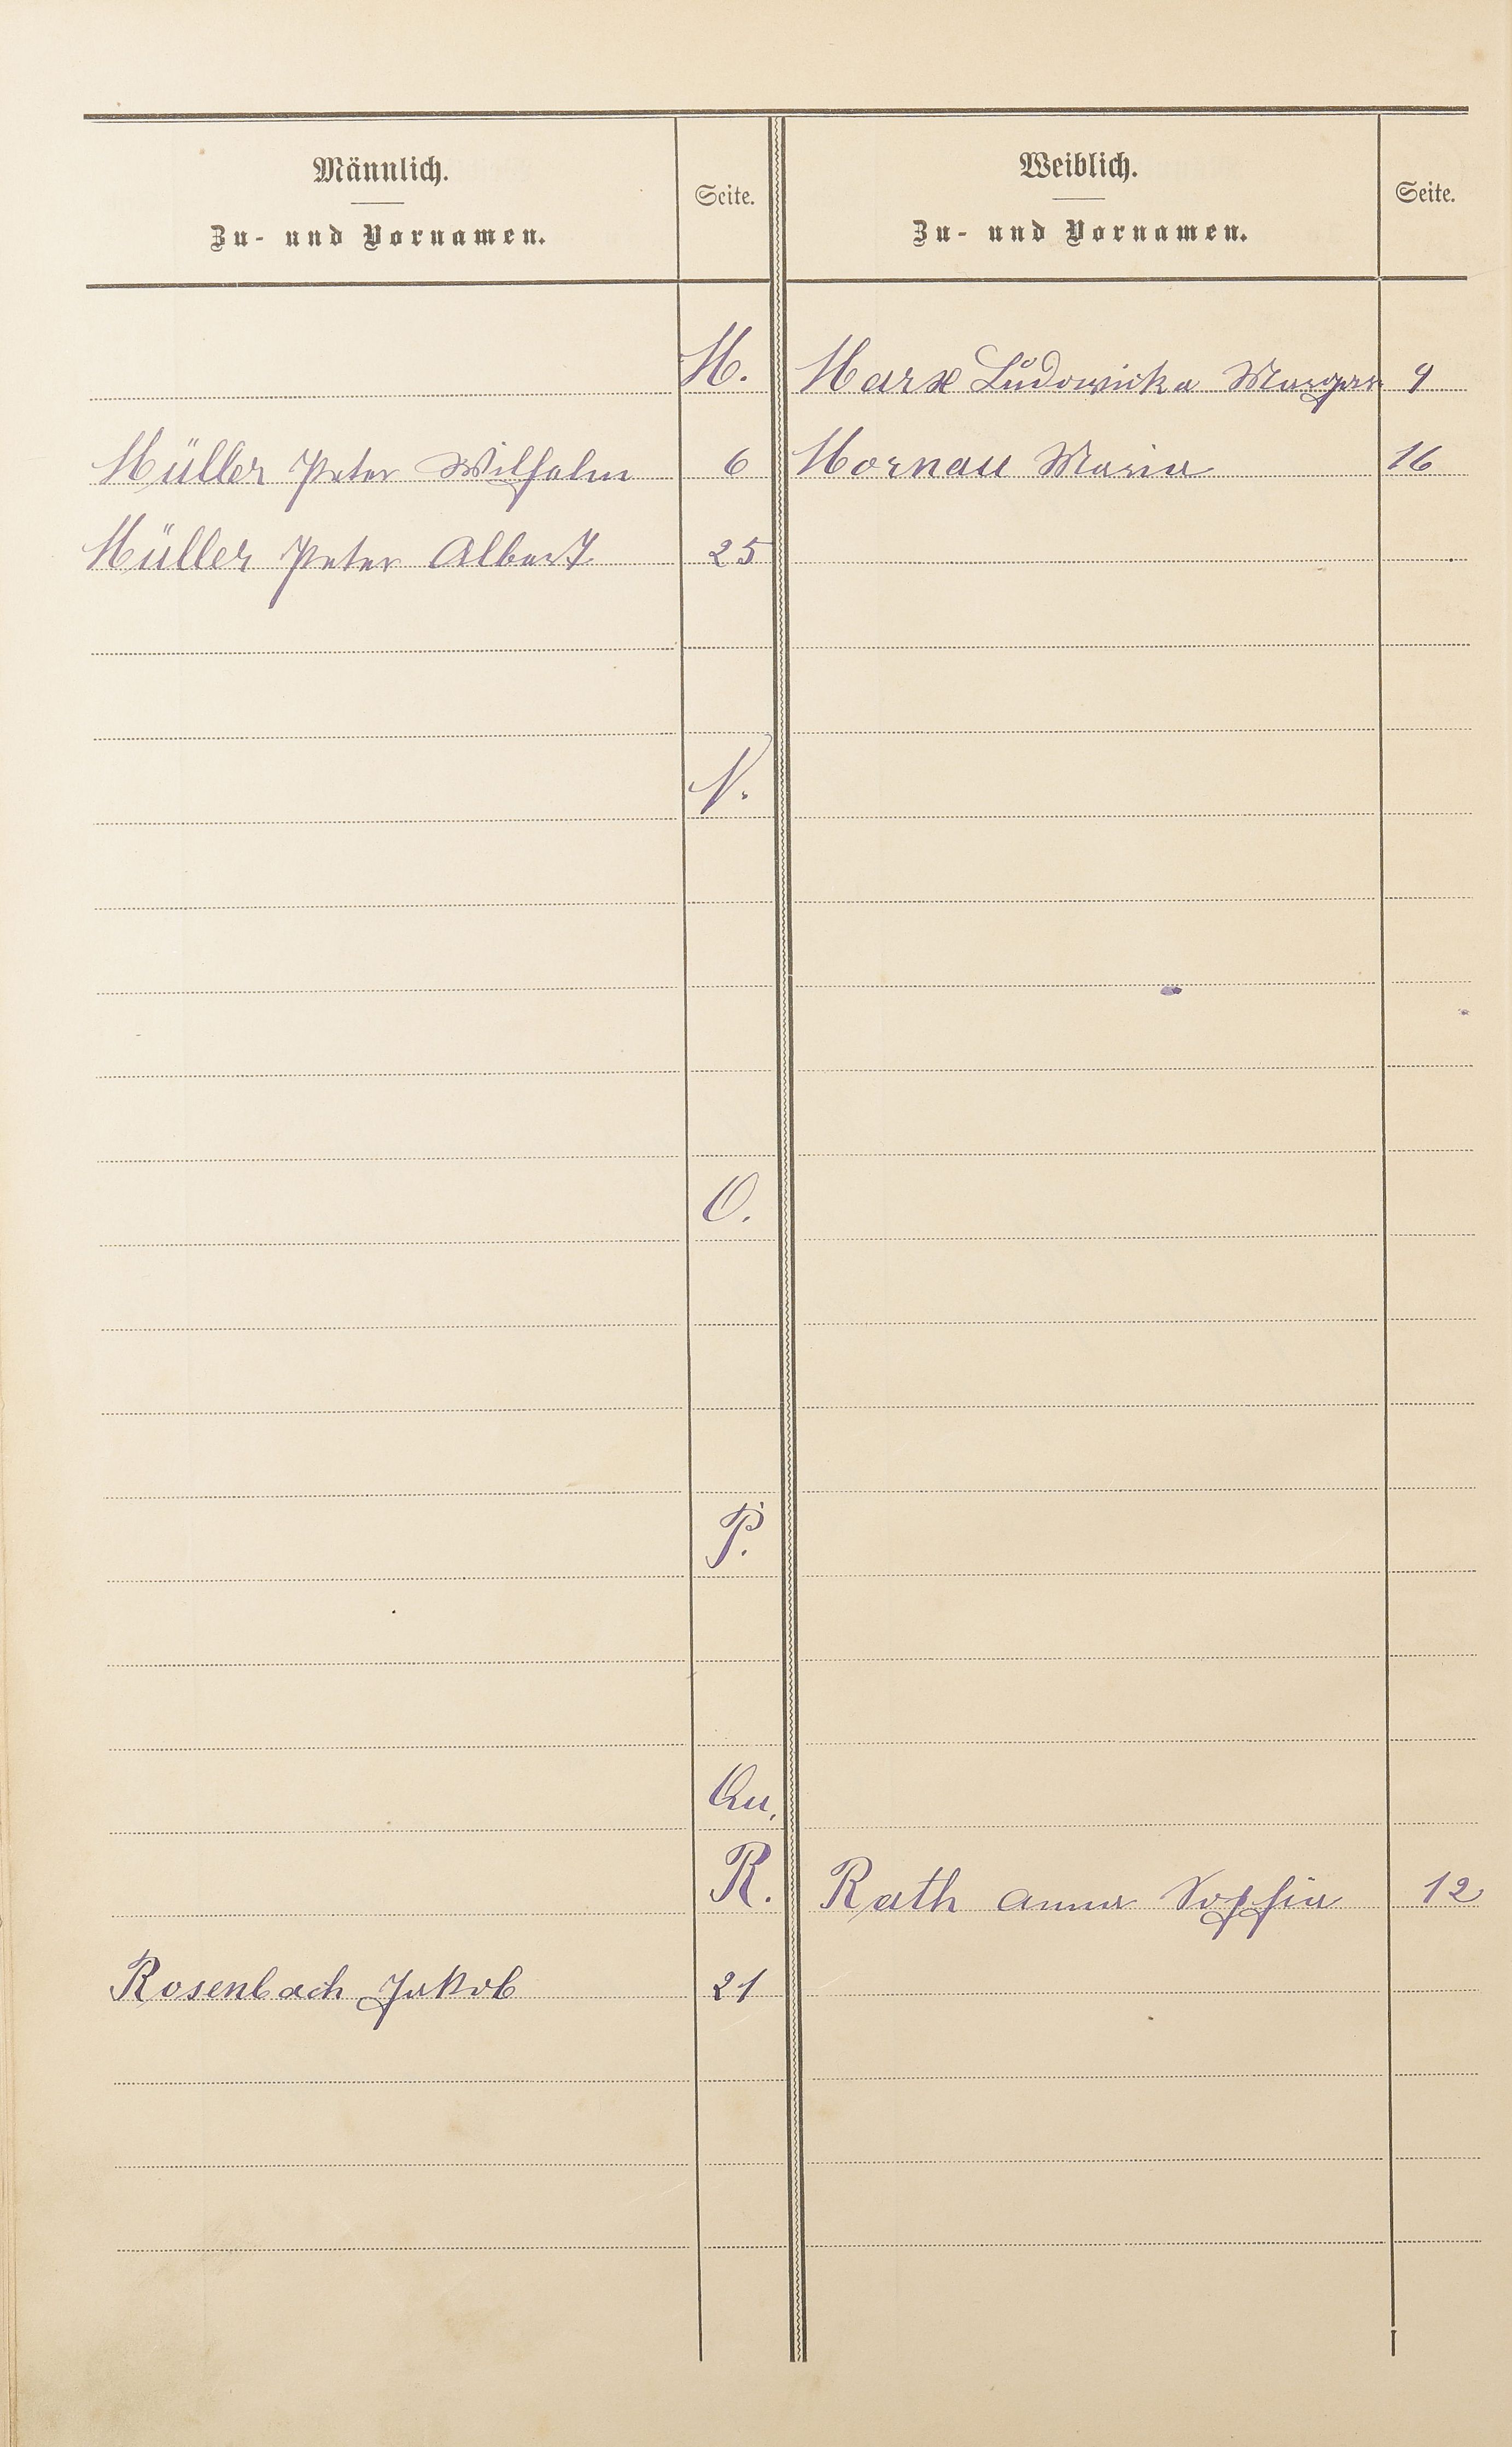 Männlich.
Zu- und Vornamen.
Seite.
Weiblich.
Zu- und Vornamen.
Seite.
M. Marx Ludowicka Margar 9
Müller Peter Wilhelm 6 Mornau Maria 16
Müller Peter Albert 25
N.
O.
P.
Qu.
R. Rath Anna Sophia 12
Rosenbach Jakob 21